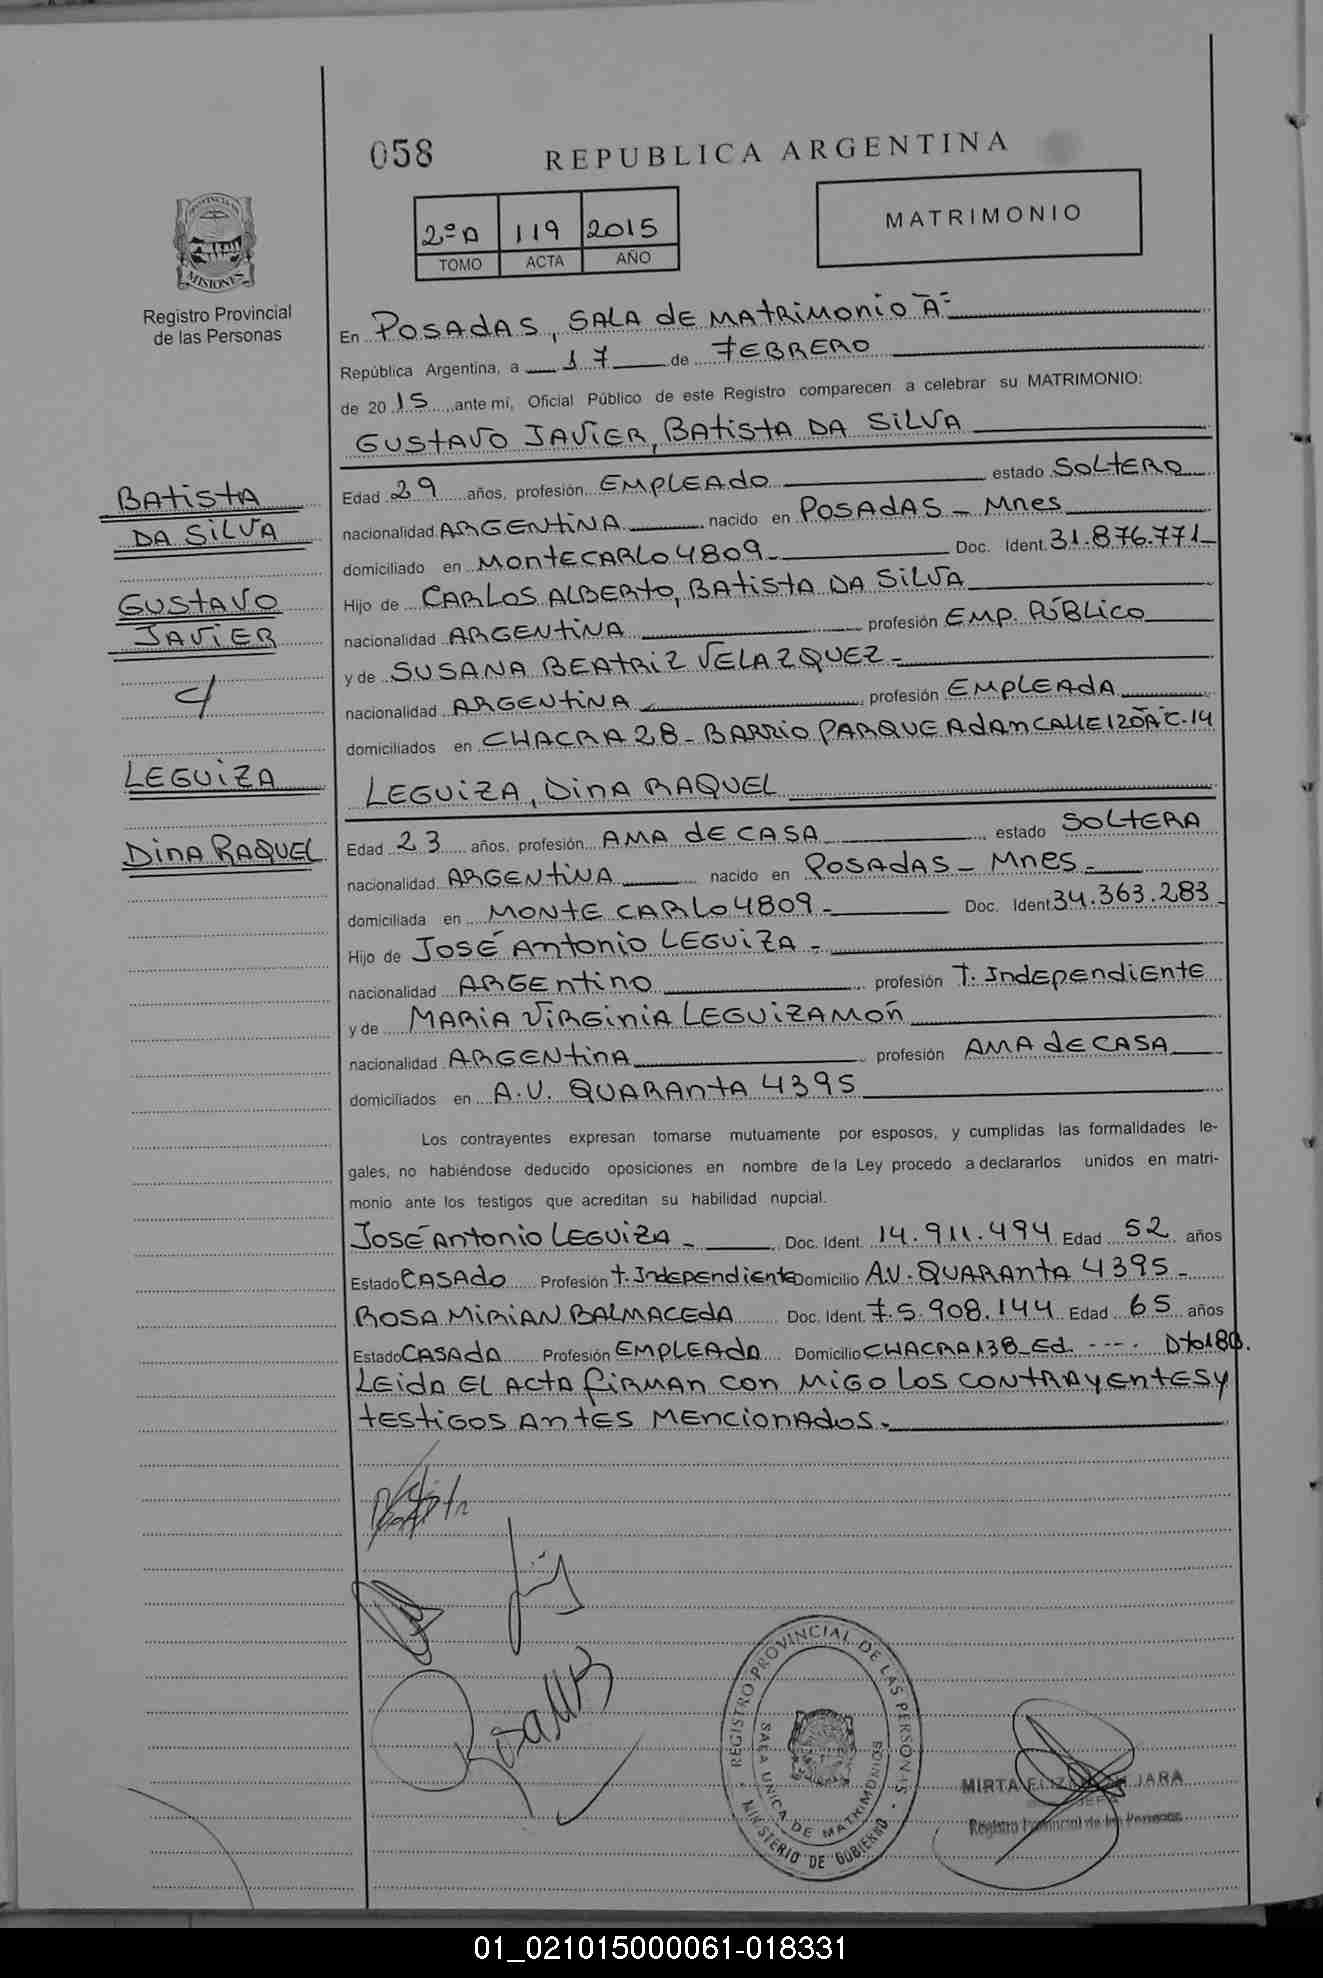 058 REPUBLICA ARGENTINA
2ºA 119 2015
TOMO ACTA AÑO
MATRIMONIO
PROVINCIA DE
MISIONES
Registro Provincial
de las Personas
En POSADAS, SALA dE MAtRiMonio A
República Argentina, a 17 de FEBRERO
de 2015 ante mí, Oficial Público de este Registro comparecen a celebrar su MATRIMONIO:
GUStAVO JAViER, BAtiStA DA SiLVA
Edad 29 años, profesión EMpLEAdo estado SOLtERO
nacionalidad ARGENtiNA nacido en POSAdAS - Mnes
domiciliado en MontECARLO 4809 Doc. Ident. 31.876.771
Hijo de CARLOS ALBERto, BAtiStA DA SiLVA
nacionalidad ARGENtiNA profesión EMP. PÚBLico
y de SUSANA BEAtRiZ VELAZQUEZ
nacionalidad ARGENtiNA profesión EMpLEAdA
domiciliados en CHACRA 28 - BARRio PARQUE AdAm CALLE 120A C.14
BAtiStA
DA SiLVA
GUStAVO
JAViER
c/
LEGUiZA
DinA RAQUEL
LEGUiZA, DinA RAQUEL
Edad 23 años, profesión AMA dE CASA estado SOLtERA
nacionalidad ARGENtiNA nacido en POSAdAS - Mnes
domiciliada en MONtE CARLo 4809 Doc. Ident 34.363.283
Hijo de JOSÉ Antonio LEGUiZA
nacionalidad ARGEntino profesión T. IndEpEndiEntE
y de MARiA ViRGiniA LEGUiZAMóN
nacionalidad ARGENtinA profesión AMA dE CASA
domiciliados en A.V. QUARAntA 4395
Los contrayentes expresan tomarse mutuamente por esposos, y cumplidas las formalidades le-
gales, no habiéndose deducido oposiciones en nombre de la Ley procedo a declararlos unidos en matri-
monio ante los testigos que acreditan su habilidad nupcial.
JOSÉ Antonio LEGUiZA Doc. Ident. 14.911.494 Edad 52 años
Estado CASAdo Profesión t. IndEpEndiEntE Domicilio AV. QUARAntA 4395
ROSA MiRiAN BALMACEdA Doc. Ident. F 5.908.144 Edad 65 años
Estado CASAdA Profesión EMpLEAdA Domicilio CHACRA 138 - Ed. ---. Dto 18B.
LEidA EL ActA fiRMAN con MiGO LOS CONtRAyEntES y
tEStiGOS AntES MEncionAdoS.
REGISTRO PROVINCIAL DE LAS PERSONAS
SALA UNICA DE MATRIMONIOS
MINISTERIO DE GOBIERNO
MIRTA JARA
Registro Provincial de las Personas
01_021015000061-018331